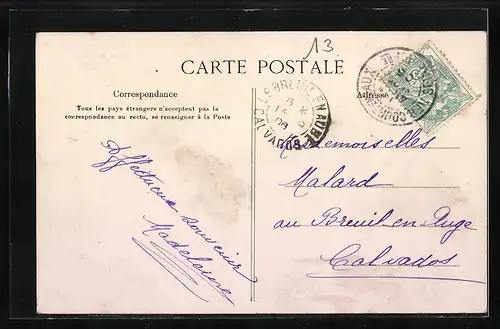 13
CARTE POSTALE
Correspondance
Tous les pays étrangers n'acceptent pas la
correspondance au recto, se renseigner à la Poste
Affectueux souvenir
Madeleine
Adresse
Mesdemoiselles
Malard
au Breuil-en-Auge
Calvados
LE BREUIL-EN-AUGE
CALVADOS